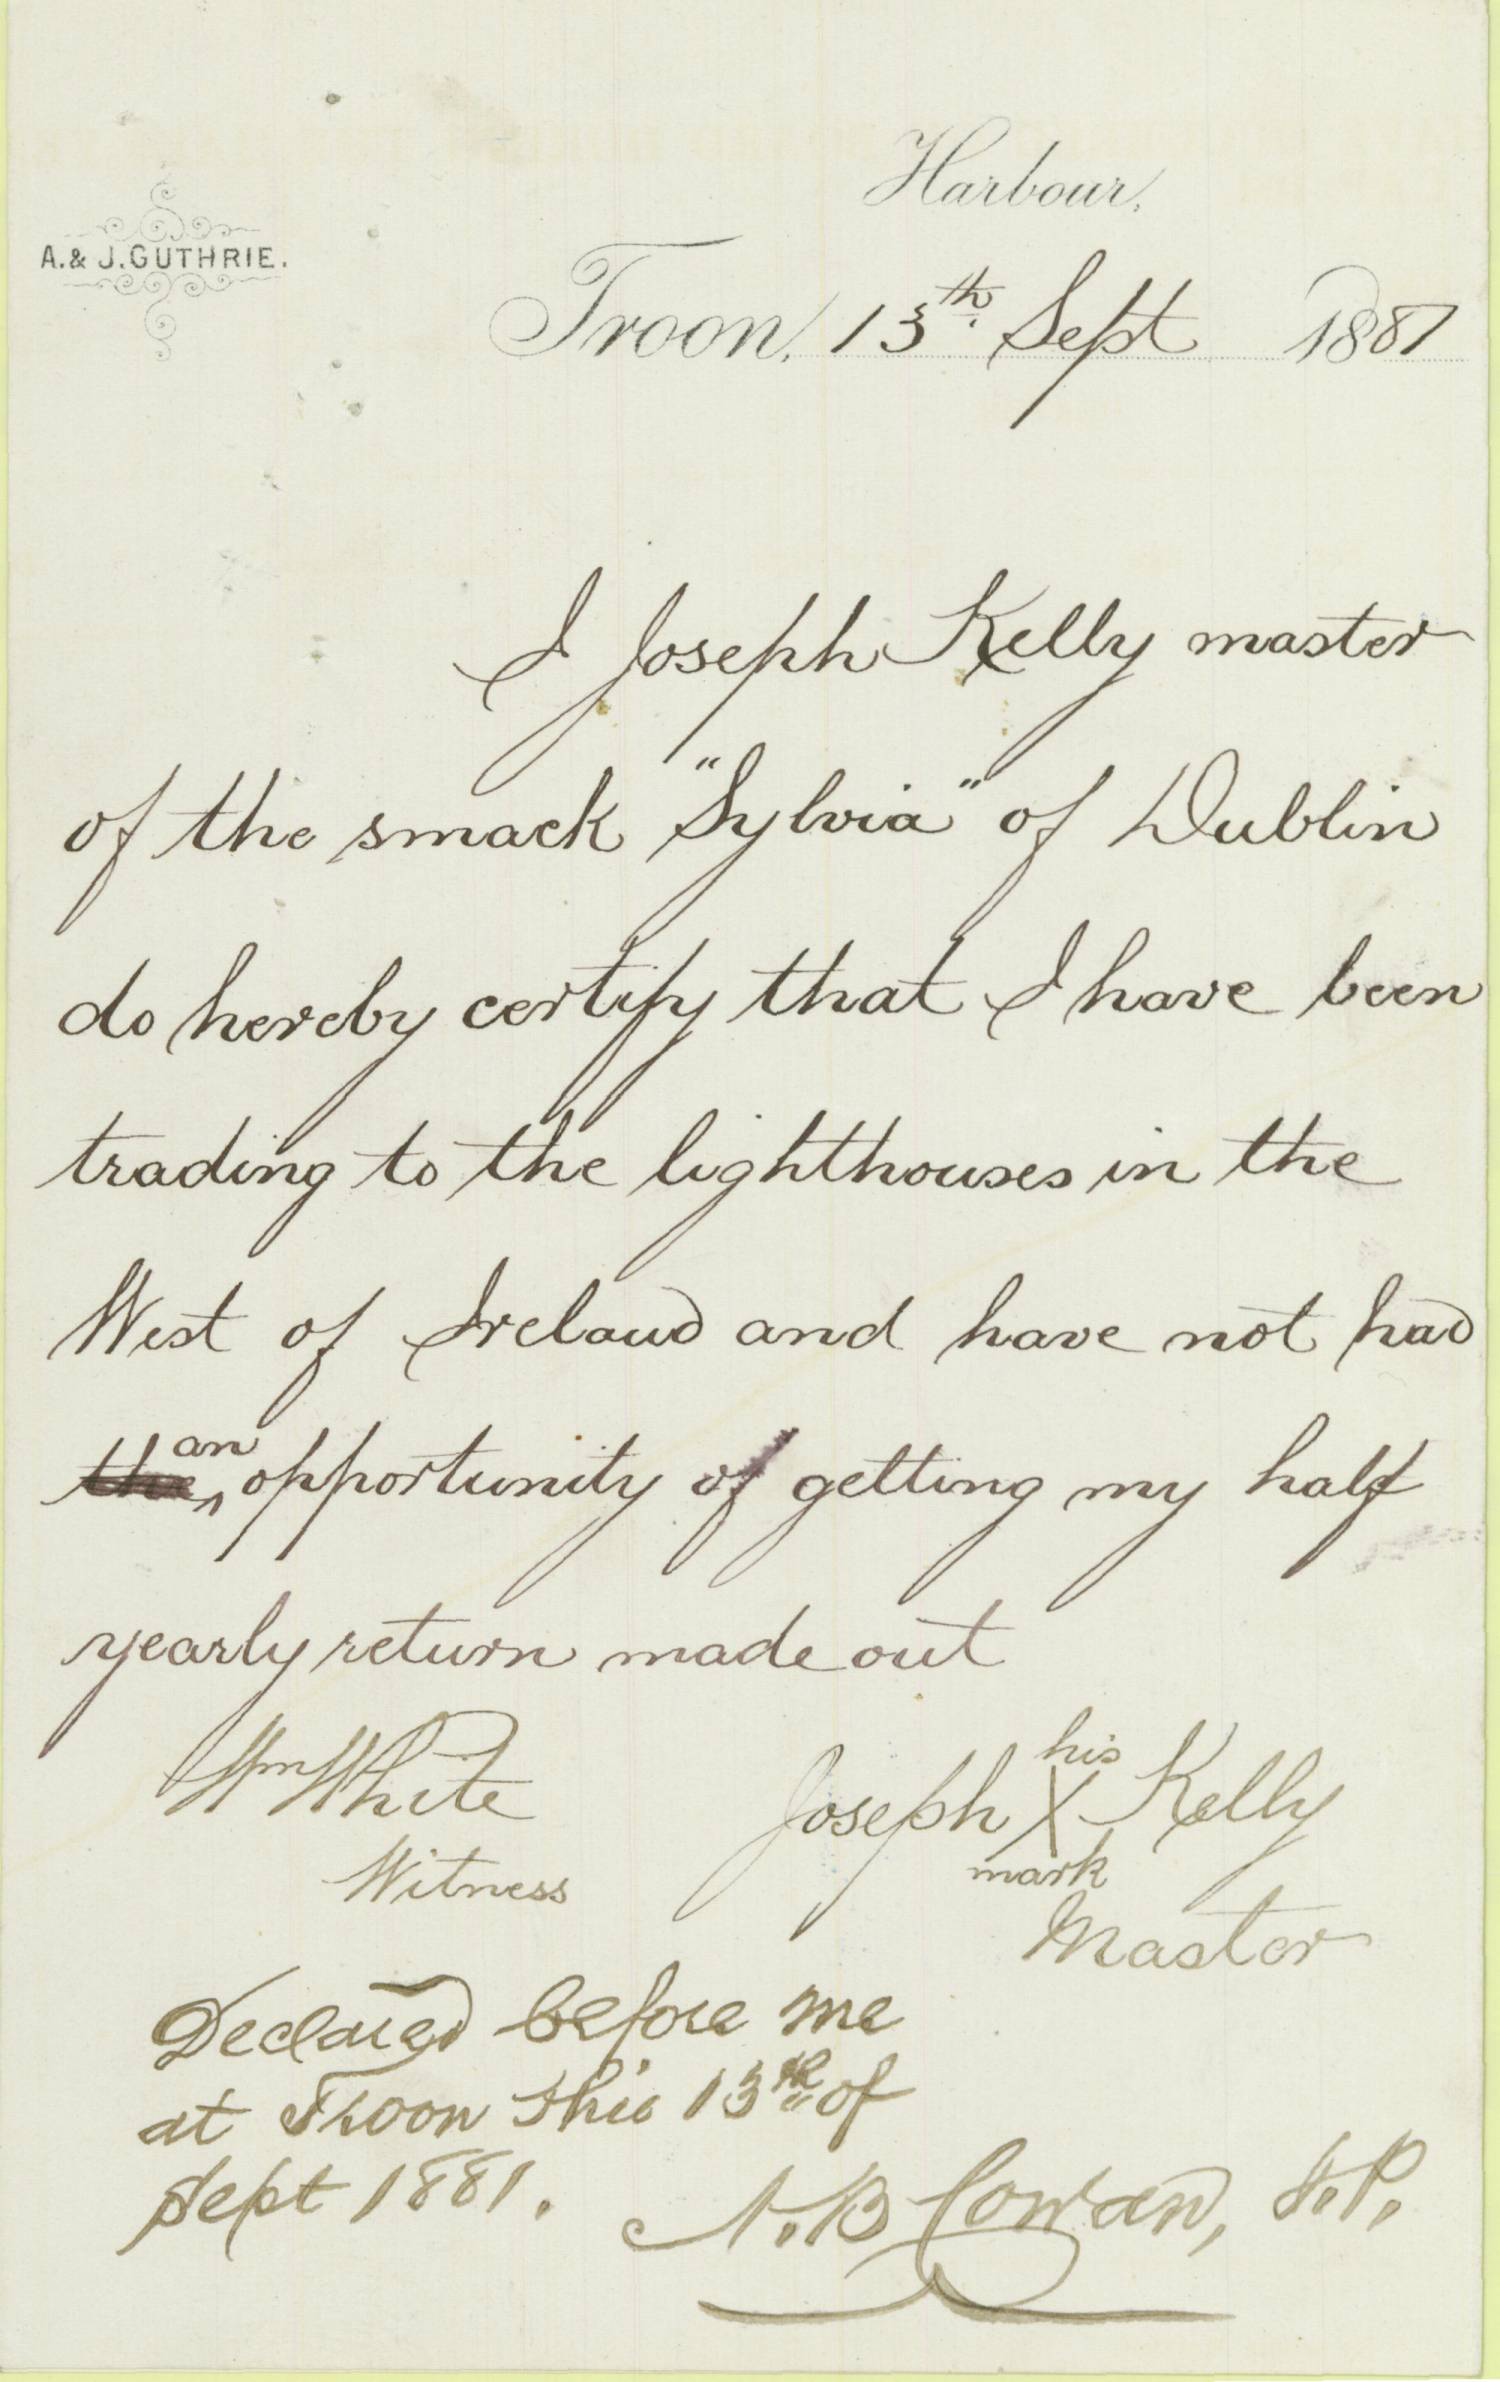 Harbour,
A. & J. GUTHRIE.
Troon, 13th Sept 1881
I Joseph Kelly master
of the smack "Sylvia" of Dublin
do hereby certify that I have been
trading to the lighthouses in the
West of Ireland and have not had
the an opportunity of getting my half
yearly return made out
Wm White
Witness
his
Joseph X Kelly
mark
Master
Declared before me
at Troon this 13th of
Sept 1881.
Cowan, J.P.